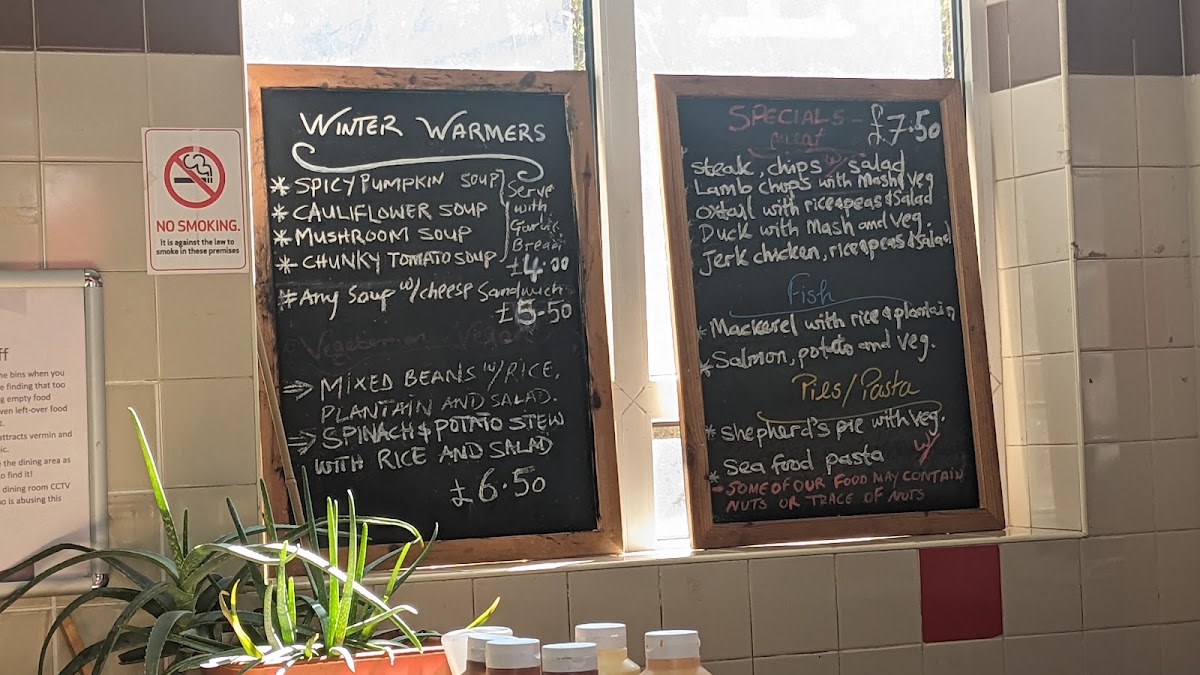 NO SMOKING.
It is against the law to
smoke in these premises
ff
e bins when you
e finding that too
g empty food
ven left-over food
t.
attracts vermin and
ic.
e the dining area as
o find it!
dining room CCTV
o is abusing this
WINTER WARMERS
* SPICY PUMPKIN SOUP
* CAULIFLOWER SOUP
* MUSHROOM SOUP
* CHUNKY TOMATO SOUP
Serve
with
Garlic
Bread
£4.00
* Any Soup w/cheese Sandwich
£5.50
Vegetarian Vegan
⇒ MIXED BEANS w/ RICE,
PLANTAIN AND SALAD.
⇒ SPINACH & POTATO STEW
WITH RICE AND SALAD
£6.50
SPECIALS - £7.50
meat
steak, chips w/ salad
Lamb chops with Mash & veg
Oxtail with rice & peas & Salad
Duck with Mash and veg.
Jerk chicken, rice & peas & Salad
Fish
* Mackerel with rice & plantain
* Salmon, potato and veg.
Pies/Pasta
* Shepherd's pie with veg.
* Sea food pasta w/
- SOME OF OUR FOOD MAY CONTAIN
NUTS OR TRACE OF NUTS